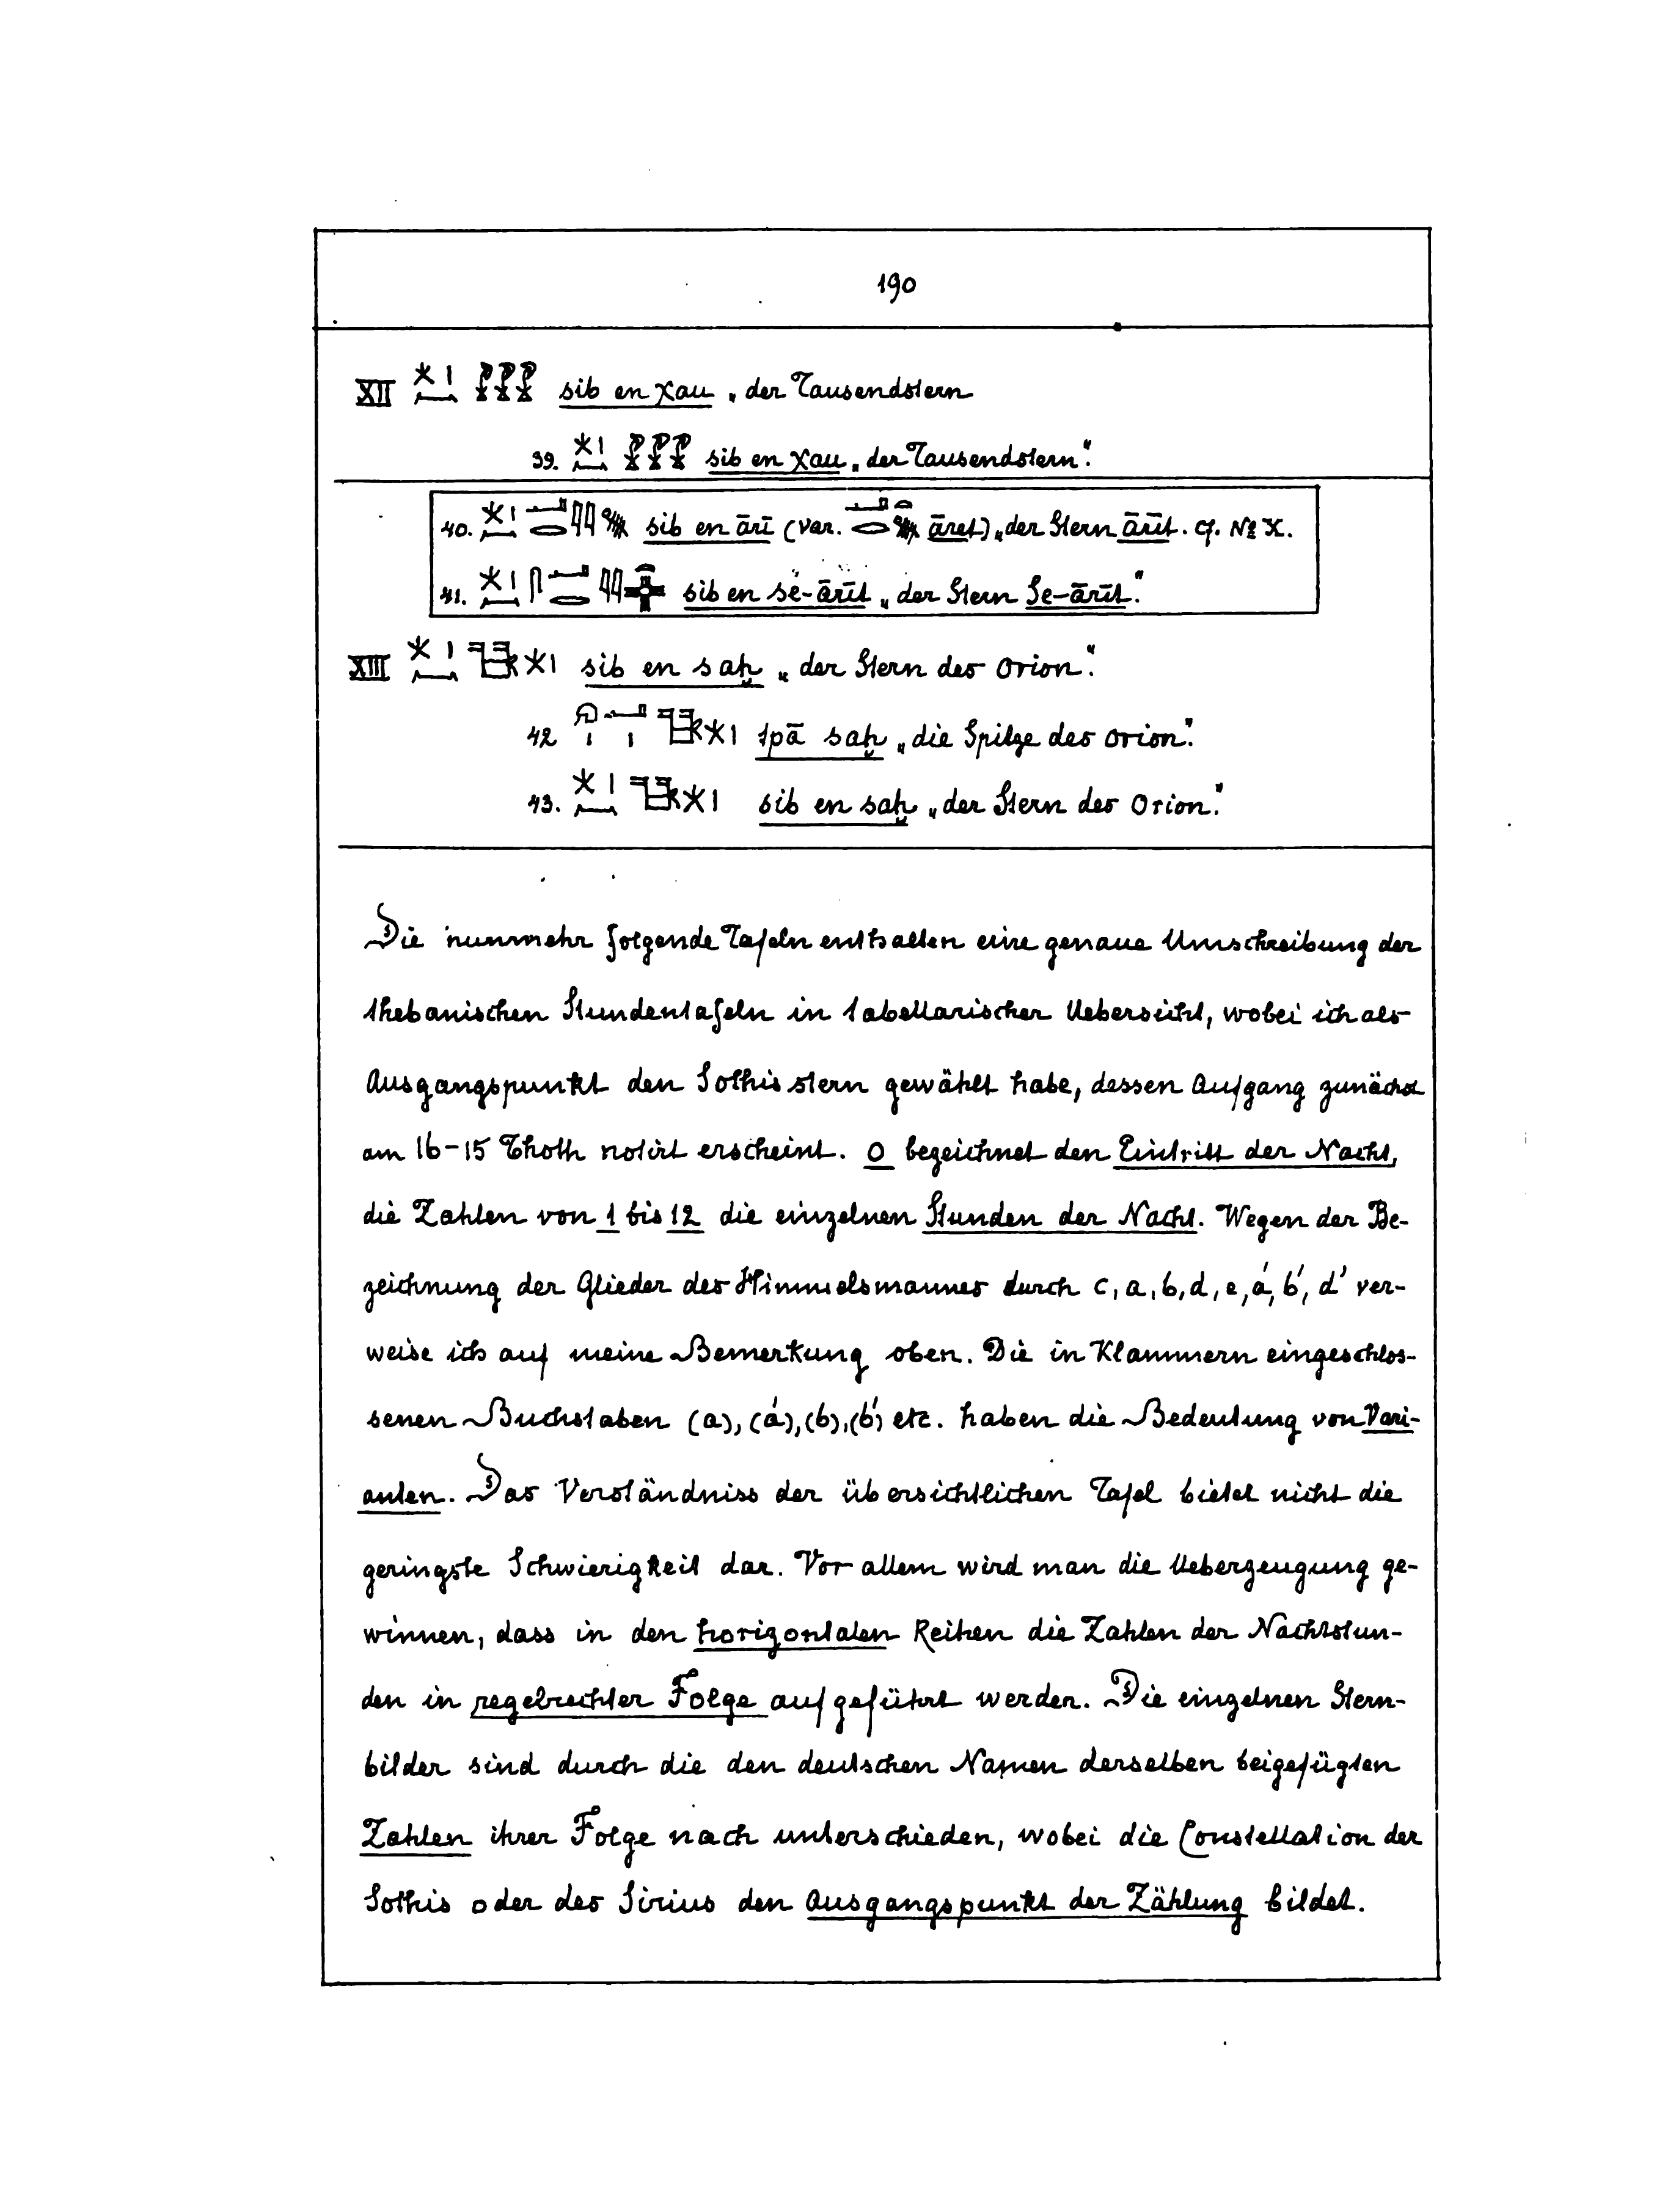 190
XII 𓇼𓏤𓈖 𓆼𓆼𓆼 sib en χau „der Tausendstern
39. 𓇼𓏤𓈖 𓆼𓆼𓆼 sib en χau „der Tausendstern“.
40. 𓇼𓏤𓈖 sib en ārī (var. āret) „der Stern ārīt. cf. № X.
41. 𓇼𓏤𓈖 sib en se-ārīt „der Stern Se-ārīt“.
XIII 𓇼𓏤𓈖 𓇼𓏤 sib en saḫ „der Stern des Orion“.
42 𓇼𓏤 tpā saḫ „die Spitze des Orion“.
43. 𓇼𓏤𓈖 𓇼𓏤 sib en saḫ „der Stern des Orion“.
Die nunmehr folgende Tafeln enthalten eine genaue Umschreibung der
thebanischen Stundentafeln in tabellarischer Uebersicht, wobei ich als
Ausgangspunkt den Sothisstern gewählt habe, dessen Aufgang zunächst
am 16-15 Thoth notirt erscheint. 0 bezeichnet den Eintritt der Nacht,
die Zahlen von 1 bis 12 die einzelnen Stunden der Nacht. Wegen der Be-
zeichnung der Glieder des Himmelsmannes durch c, a, b, d, e, a', b', d' ver-
weise ich auf meine Bemerkung oben. Die in Klammern eingeschlos-
senen Buchstaben (a), (a'), (b), (b') etc. haben die Bedeutung von Vari-
anten. Das Verständniss der übersichtlichen Tafel bietet nicht die
geringste Schwierigkeit dar. Vor allem wird man die Ueberzeugung ge-
winnen, dass in den horizontalen Reihen die Zahlen der Nachtstun-
den in regelrechter Folge aufgeführt werden. Die einzelnen Stern-
bilder sind durch die den deutschen Namen derselben beigefügten
Zahlen ihrer Folge nach unterschieden, wobei die Constellation der
Sothis oder des Sirius den Ausgangspunkt der Zählung bildet.